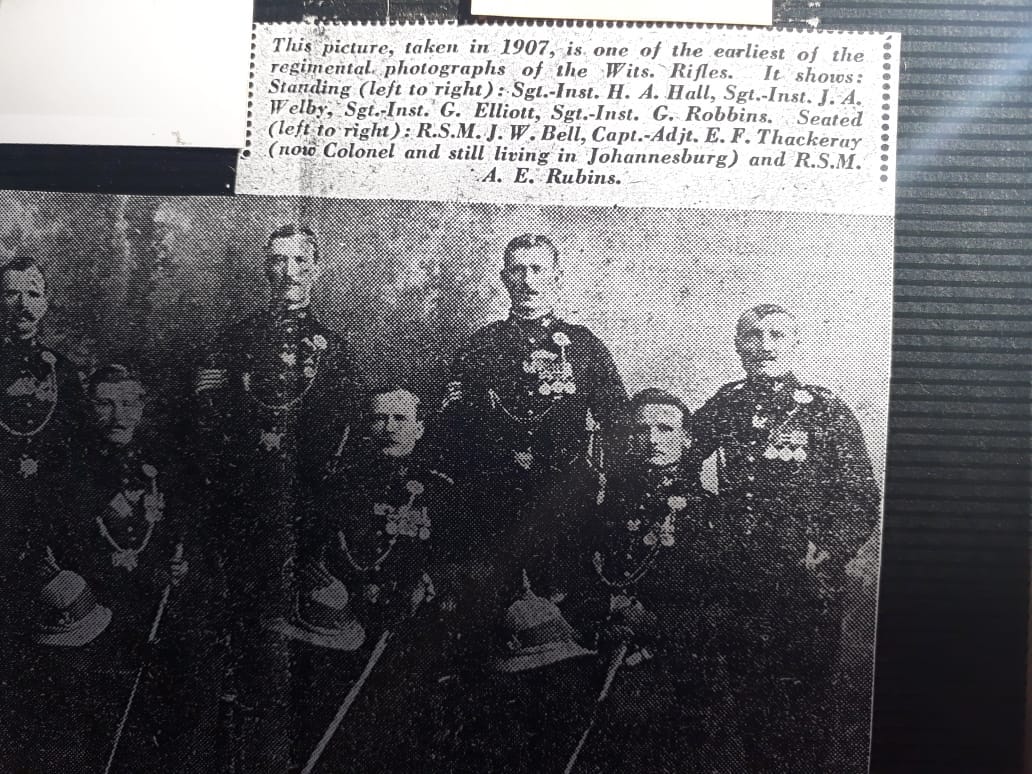 This picture, taken in 1907, is one of the earliest of the
regimental photographs of the Wits. Rifles. It shows:
Standing (left to right): Sgt.-Inst. H. A. Hall, Sgt.-Inst. J. A.
Welby, Sgt.-Inst. G. Elliott, Sgt.-Inst. G. Robbins. Seated
(left to right): R.S.M. J. W. Bell, Capt.-Adjt. E. F. Thackeray
(now Colonel and still living in Johannesburg) and R.S.M.
A. E. Rubins.